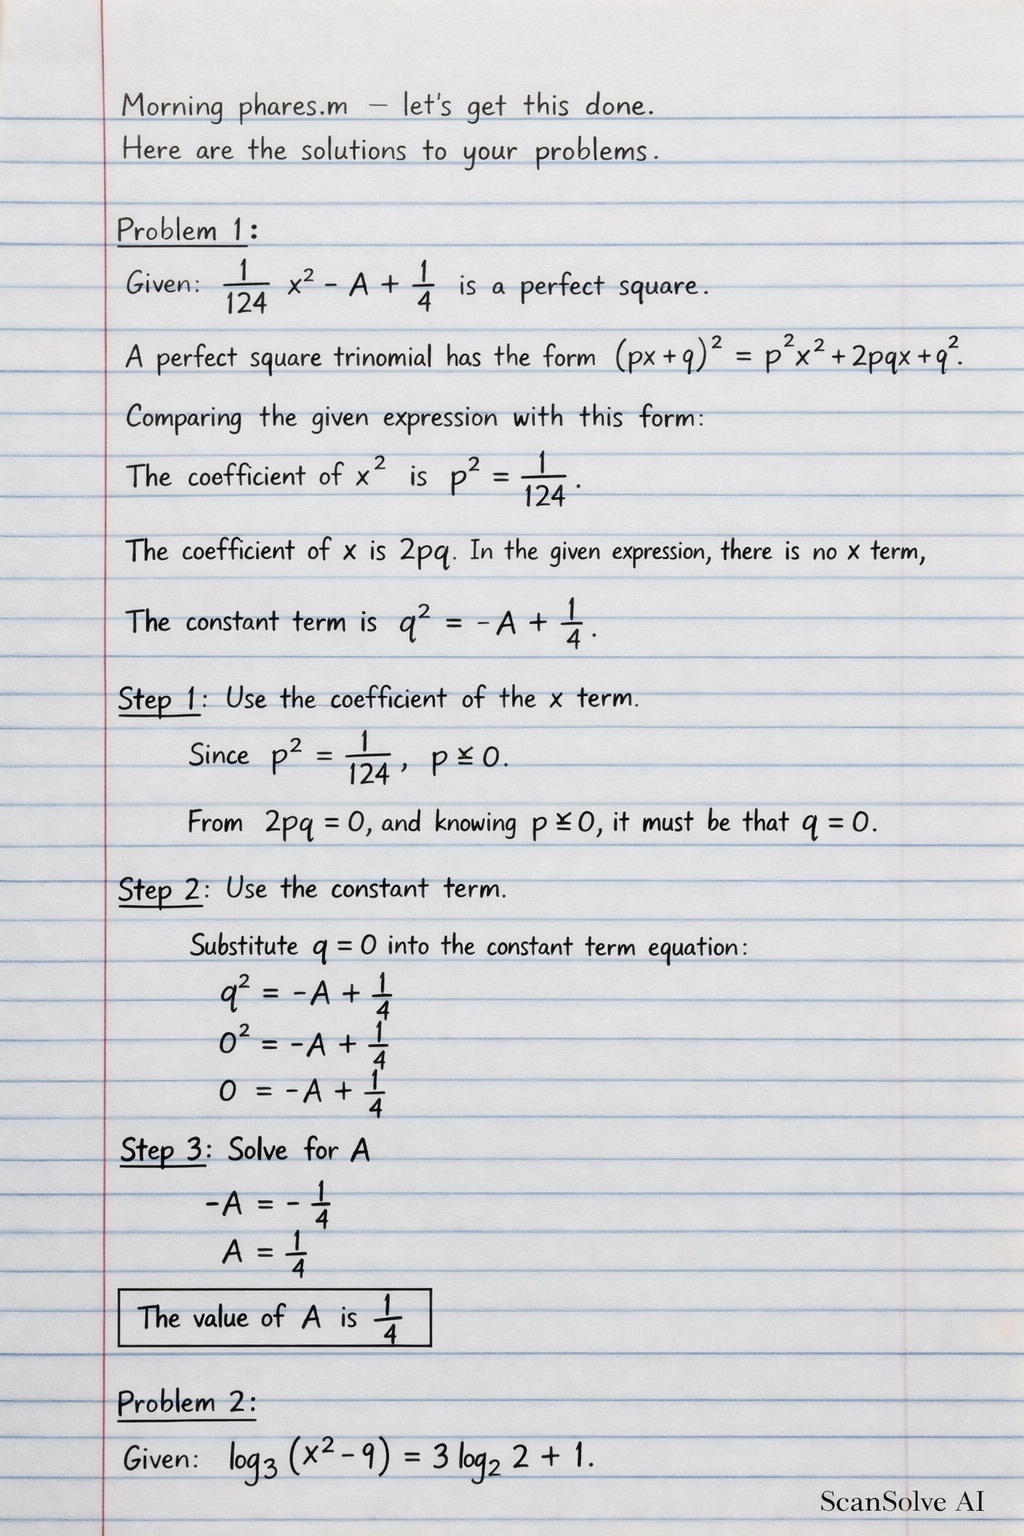 Morning phares.m — let's get this done.
Here are the solutions to your problems.
Problem 1:
Given: 1/124 x² - A + 1/4 is a perfect square.
A perfect square trinomial has the form (px + q)² = p²x² + 2pqx + q².
Comparing the given expression with this form:
The coefficient of x² is p² = 1/124.
The coefficient of x is 2pq. In the given expression, there is no x term,
The constant term is q² = -A + 1/4.
Step 1: Use the coefficient of the x term.
Since p² = 1/124, p ≚ 0.
From 2pq = 0, and knowing p ≚ 0, it must be that q = 0.
Step 2: Use the constant term.
Substitute q = 0 into the constant term equation:
q² = -A + 1/4
0² = -A + 1/4
0 = -A + 1/4
Step 3: Solve for A
-A = - 1/4
A = 1/4
The value of A is 1/4
Problem 2:
Given: log₃ (x² - 9) = 3 log₂ 2 + 1.
ScanSolve AI